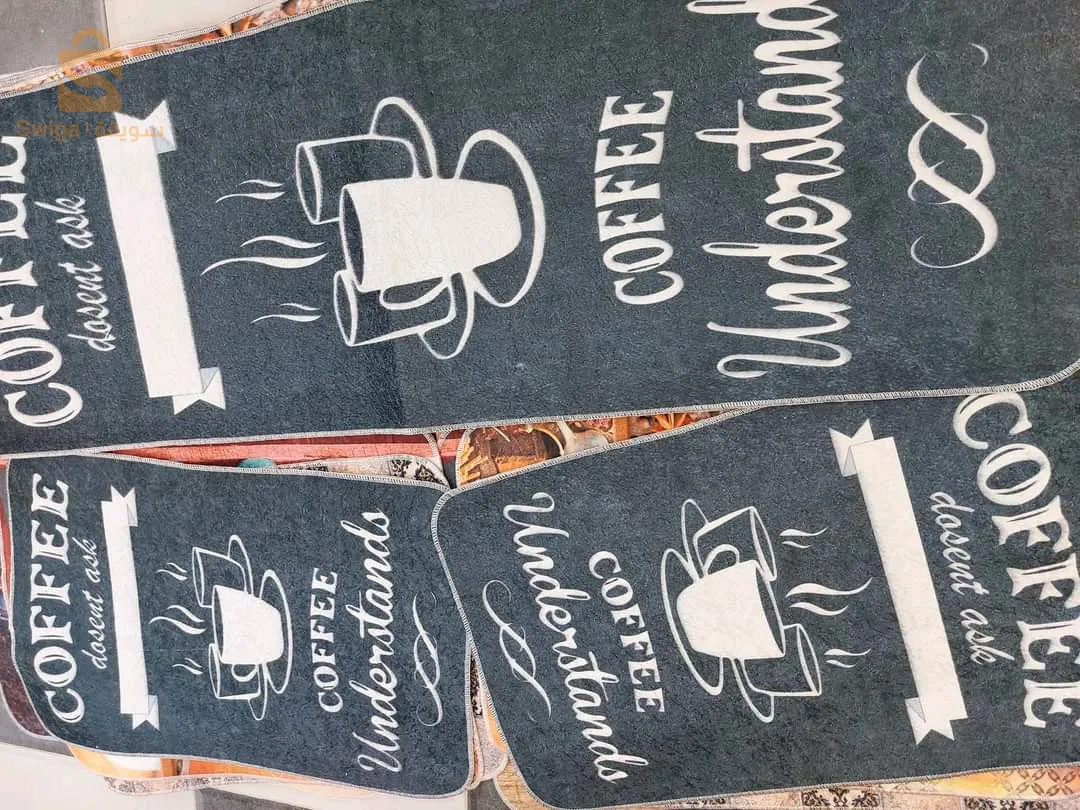 Swiqa سويقة
COFFEE
dosent ask
COFFEE
Understand
COFFEE
dosent ask
COFFEE
Understands
COFFEE
dosent ask
COFFEE
Understands